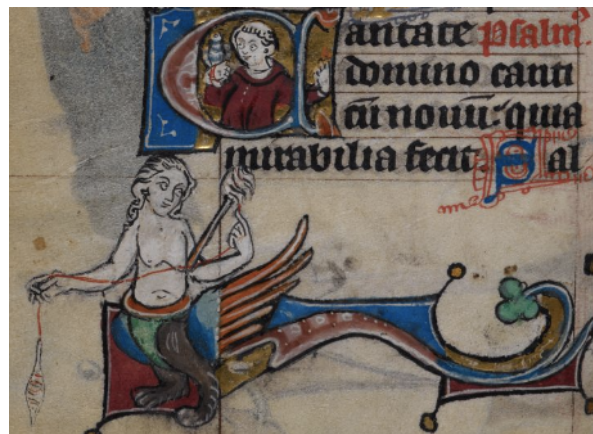 Cantate Psalmꝰ
domino canti
cū nouū: quia
mirabilia fecit. Sal